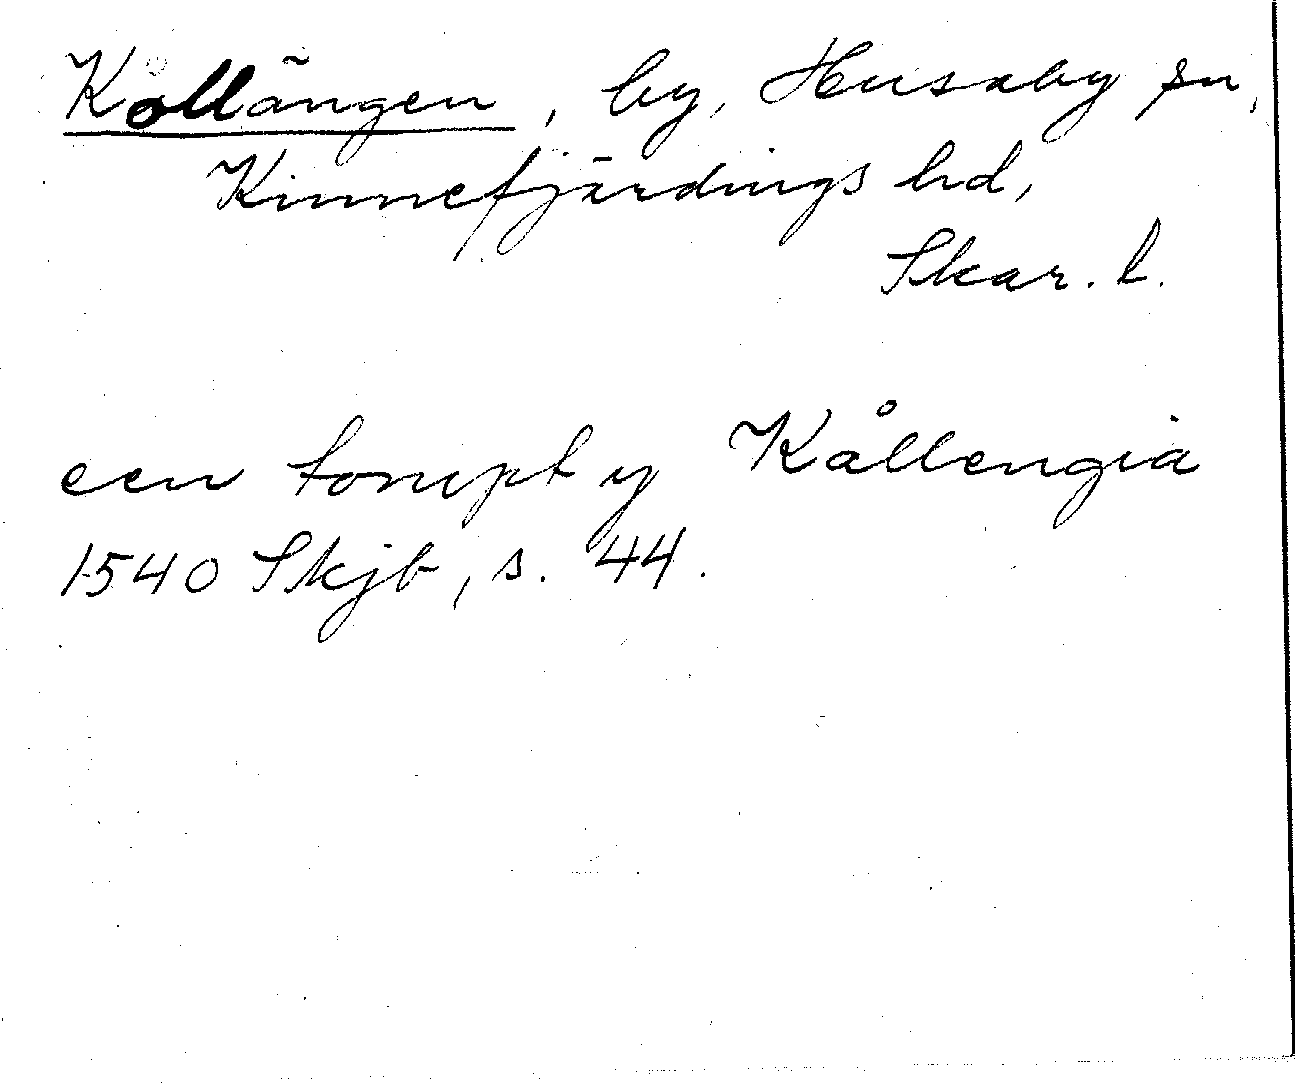 Kollängen, by, Husaby sn,
Kinnefjärdings hd,
Skar. l.
een tompt y Kållengia
1540 Skjb, s. 44.